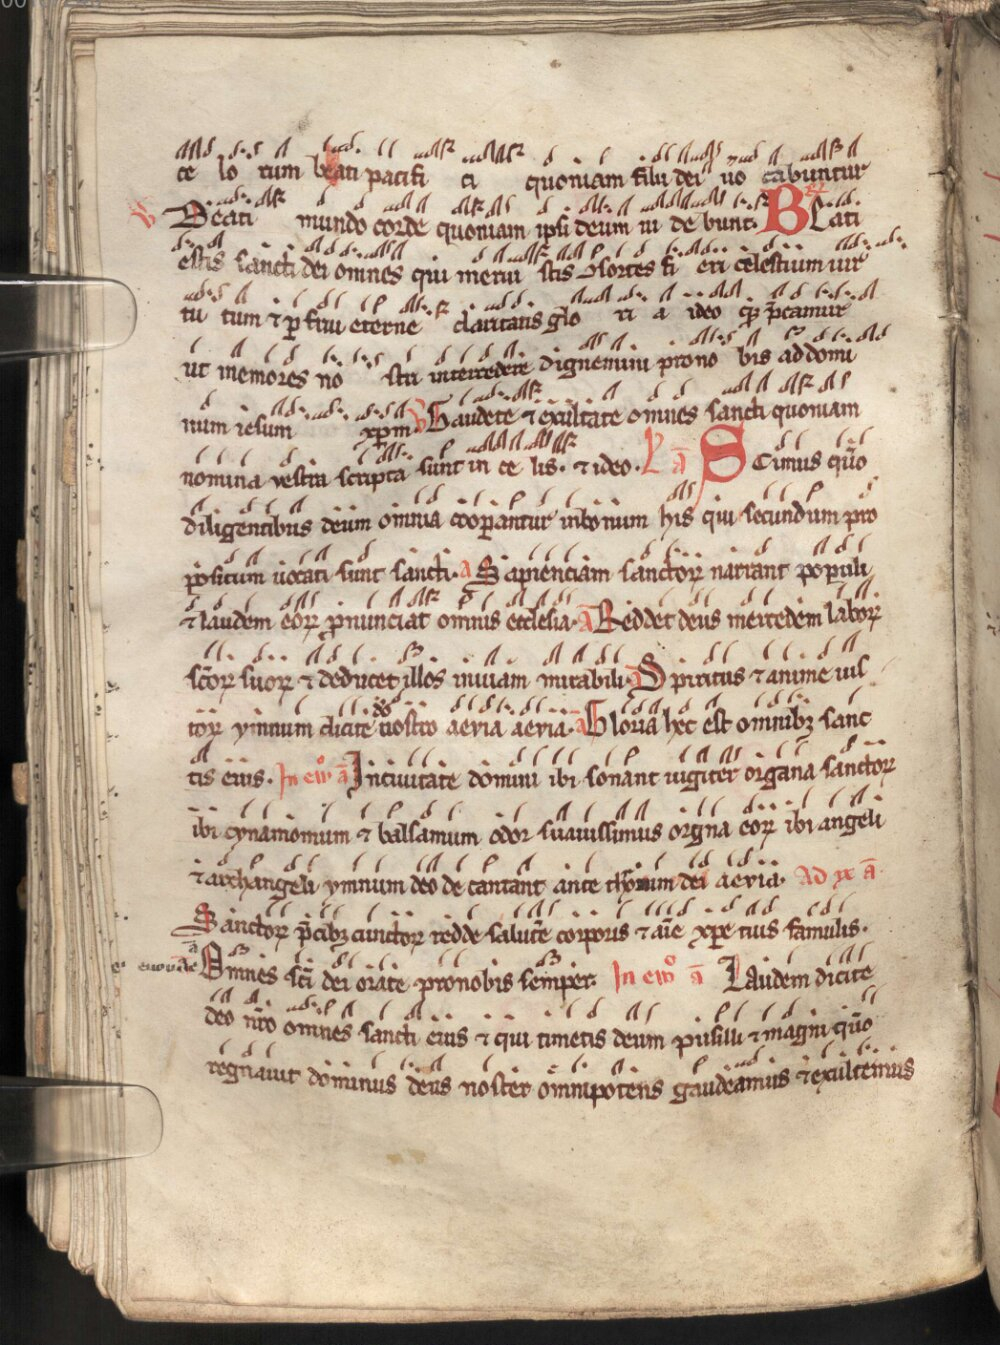 ce lo rum beati pacifi ci quoniam filii dei uo cabuntur
V Beati mundo corde quoniam ipsi deum ui de bunt. R Beati
estis sancti dei omnes qui merui stis ꝯsortes fi eri celestium uir
tu tum ⁊ ꝑ frui eterne claritatis glo ri a ideo p̄camur
ut memores no stri intercedere dignemini pro no bis ad domi
num iesum xpm. V Gaudete ⁊ exultate omnes sancti quoniam
nomina vestra scripta sunt in ce lis. ⁊ ideo. L ā Scimus qūo
diligentibus deum omnia cooꝑantur in bonum his qui secundum pro
positum uocati sunt sancti. a Sapienciam sanctoꝝ narrant populi
⁊ laudem eoꝝ ꝓnunciat omnis ecclesia. ā Reddet deus mercedem laboꝝ
sc̄oꝝ suoꝝ ⁊ deducet illos in uiam mirabili. Spiritus ⁊ anime ius
toꝝ ymnum dicite deo nostro aevia aevia. ā Gloria hec est omnibꝫ sanc
tis eius. In ew̄ ā In ciuitate domini ibi sonant iugiter organa sanctoꝝ
ibi cynamomum ⁊ balsamum odor suauissimus orgna eoꝝ ibi angeli
⁊ archangeli ymnum deo de cantant ante thronum dei aevia. Ad ā
Sanctoꝝ p̄cibꝫ cunctoꝝ redde salutē corporis ⁊ aīe xp̄e tuis famulis.
ā Omnes sc̄i dei orate pro nobis semper. In ew̄ ā Laudem dicite
deo nr̄o omnes sancti eius ⁊ qui timetis deum pusilli ⁊ magni qūo
regnauit dominus deus noster omnipotens gaudeamus ⁊ exultemus